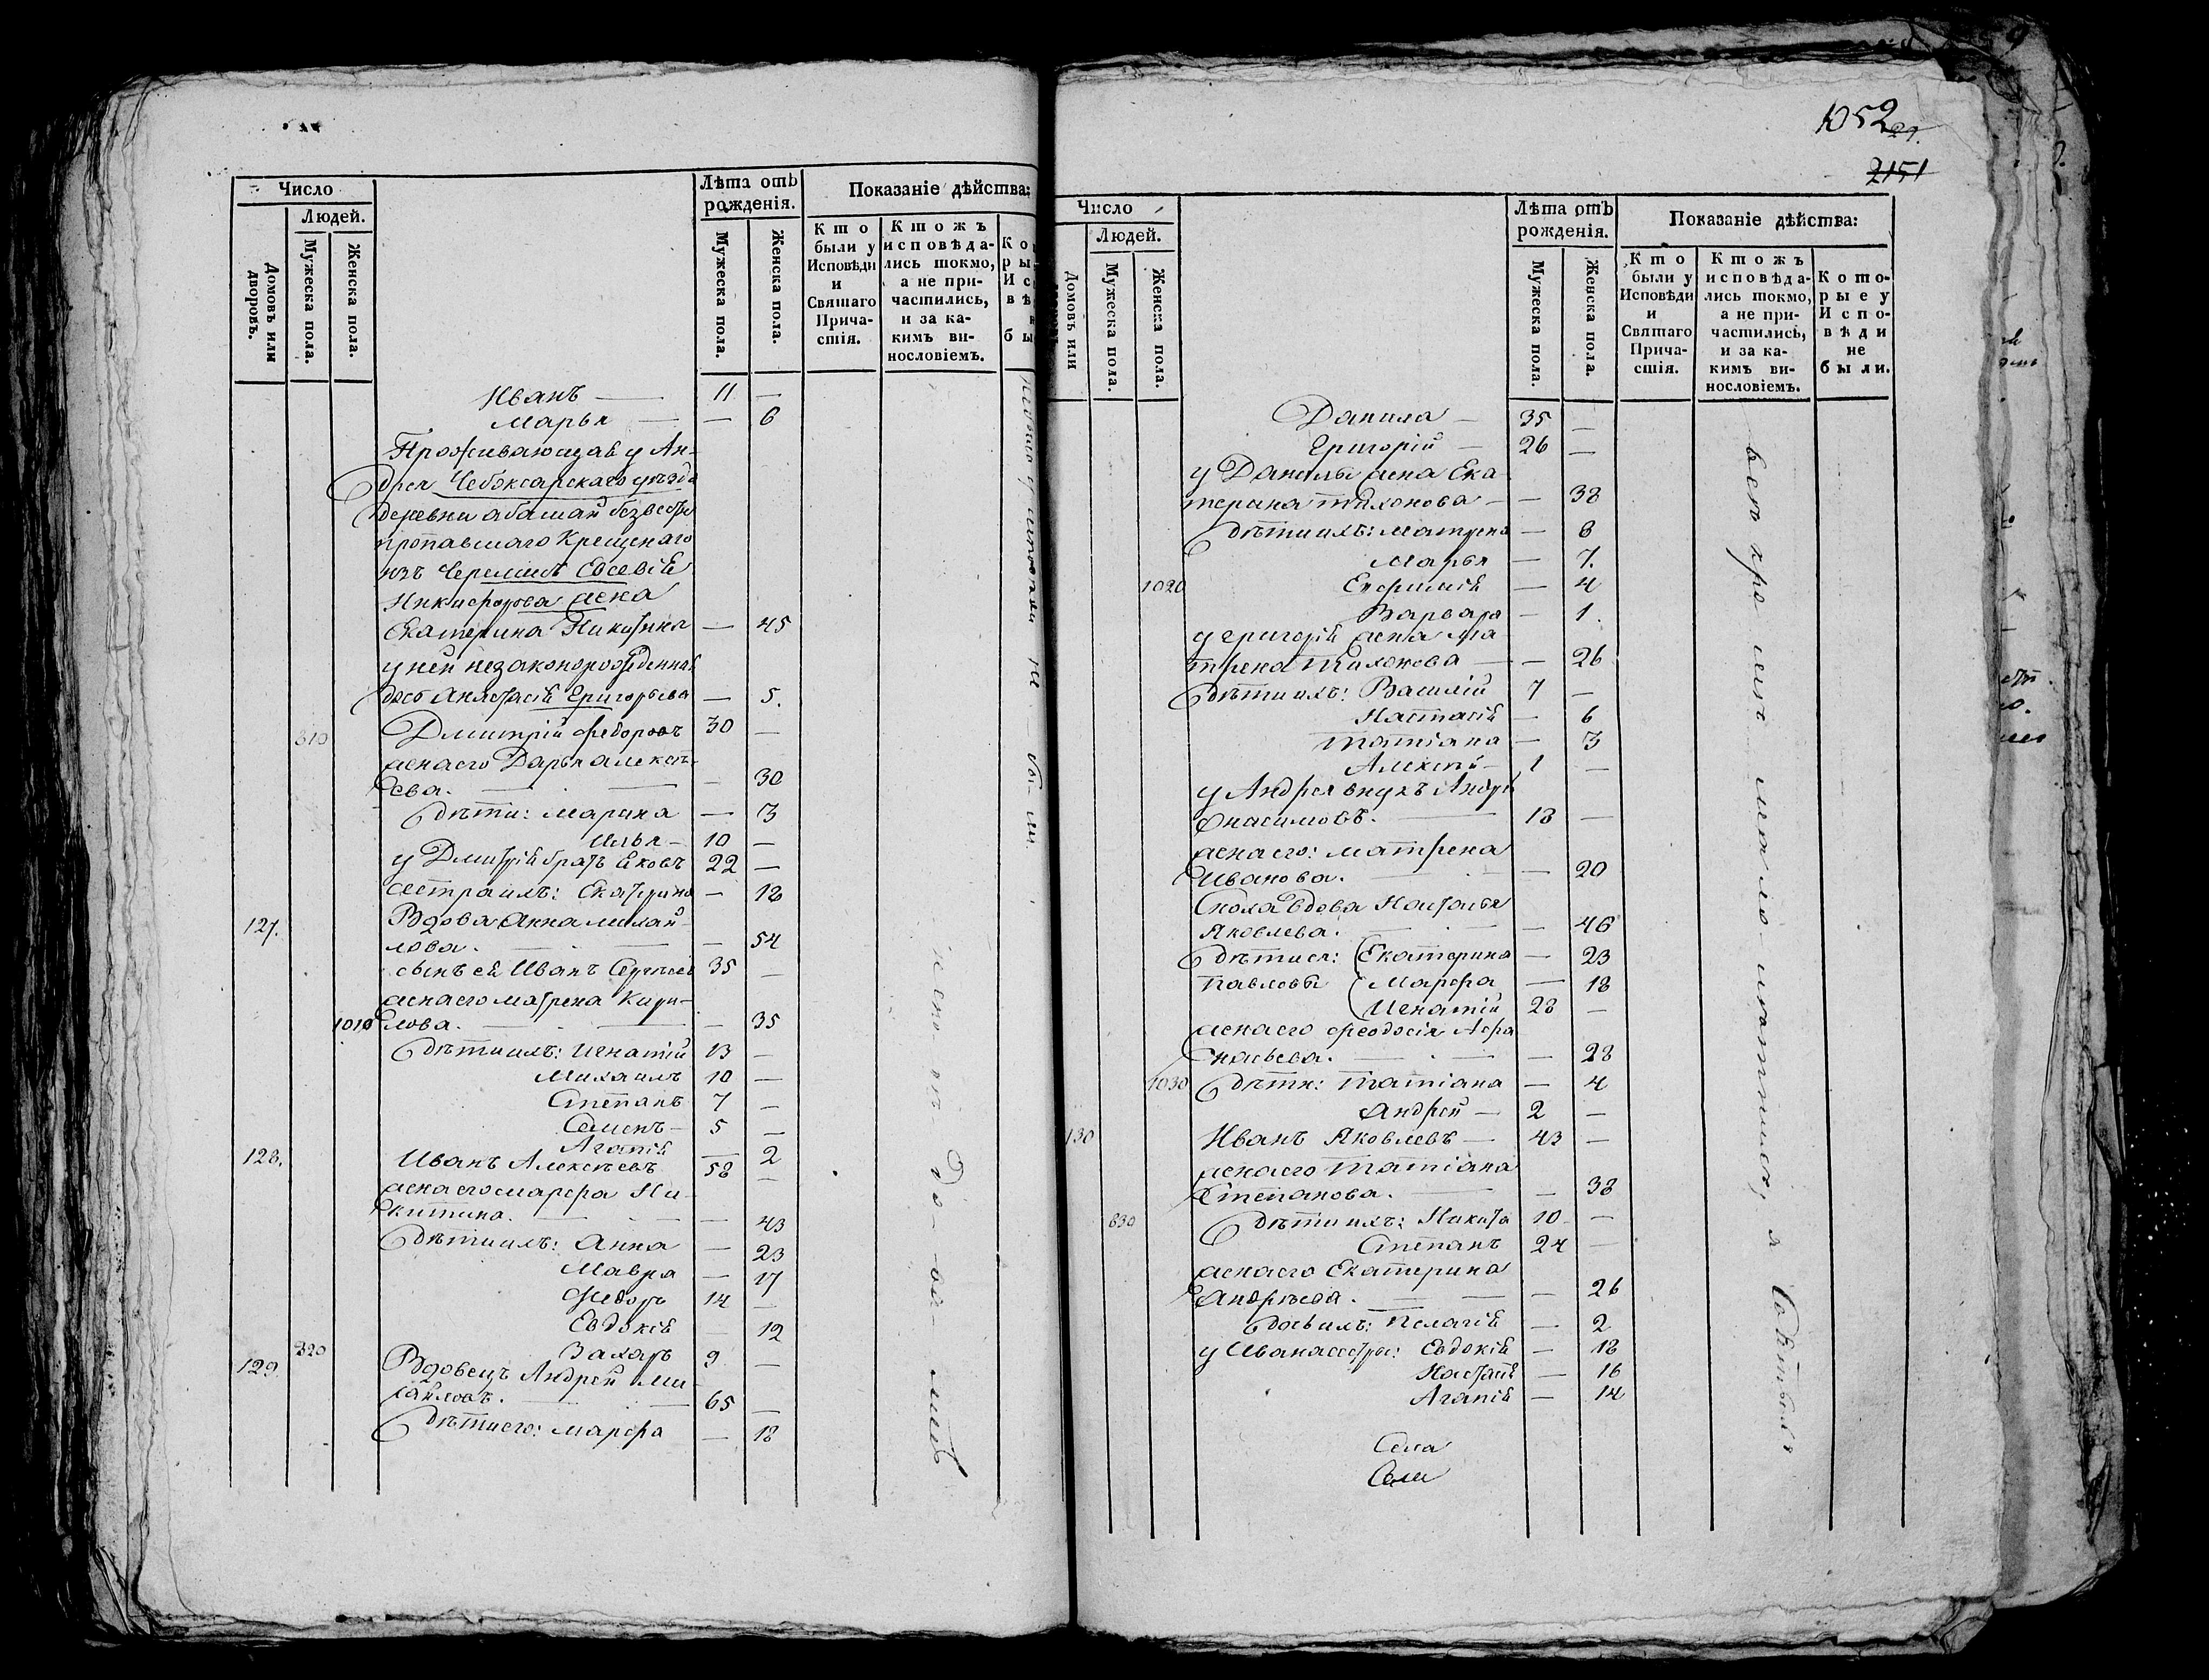 Число
Людей.
Домовъ или дворовъ.
Мужеска пола.
Женска пола.
Лѣта отъ рожденія.
Мужеска пола.
Женска пола.
Показаніе дѣйства:
Кто были у Исповѣди и Святаго Причастія.
Ктожъ исповѣдались токмо, а не причастились, и за какимъ винословіемъ.
Иванъ — 11 —
Марья — — 6
Проживающая у Ан-
дрея Чебоксарскаго уѣзда
деревни абашай безвестно
пропавшаго Крещенаго
изъ Черемисъ Евсевія
Никифорова жена
Екатерина Никитина — 45
у ней незаконорожденная
дочь Анастасія Григорьева — 5.
810 Дмитрій Федоровъ 30 —
жена его Дарья алексѣ-
ева. — 30
дѣти: Марина — 3
Илья — 10 —
у Дмитрія братъ Яковъ 22 —
сестра ихъ: Екатерина — 18
127. Вдова Анна михай-
лова. — 54
сынъ ея Иванъ Сергѣевъ 35 —
жена его матрена Кири-
1010 лова. — 35
дѣти ихъ: Игнатій 13 —
Михаилъ 10 —
Степанъ 7 —
Семенъ — 5 —
Агапія — 2
128. Иванъ Алексѣевъ 58 —
жена его марфа Ни-
китина. — 43
дѣти ихъ: Анна — 23
Мавра — 17
Федоръ 14 —
Евдокія 12
820 Захаръ 9 —
129. Вдовецъ Андрей Ми-
хайловъ. 65 —
дѣти его: марфа — 18
1052
2151
Число
Людей.
Домовъ или
Мужеска пола.
Женска пола.
Лѣта отъ рожденія.
Мужеска пола.
Женска пола.
Показаніе дѣйства:
Кто были у Исповѣди и Святаго Причастія.
Ктожъ исповѣдались токмо, а не причастились, и за какимъ винословіемъ.
Которые у Исповѣди не были.
Данила — 35 —
Григорій — 26 —
у Данилы жена Ека-
терина тихонова — — 38
дѣти ихъ: Матрена — 8
Марья — 7.
1020 Ефимія — 4
Варвара — 1.
у григорія жена Ма-
трена Тихонова — — 26
дѣти ихъ: Василій 7 —
Настасія — 6
татіана — 3
Алексѣй — 1 —
у Андрея внукъ Андрей
Онисимовъ. — 18 —
жена его: матрена
Иванова. — 20
Сноха вдова Наталья
Яковлева. — 46
дѣти ея: Екатерина — 23
Павловы Марфа — 18
Игнатій 28 —
жена его феодосія Афа-
насьева. — 28
1030 дѣти: татіана — 4
Андрей — 2 —
130 Иванъ Яковлевъ — 43 —
жена его татіана
Степанова. — 38
830 дѣти ихъ: Никита 10 —
Степанъ 24 —
жена его Екатерина
Андрѣева. — 26
дочь ихъ: Пелагія — 2
у Ивана сестры: Евдокія — 18
Настасія — 16
Агапія — 14
Села